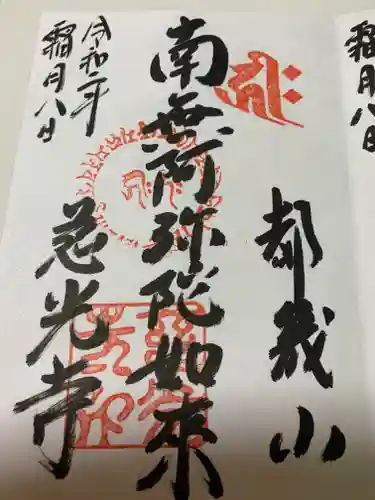 霜月八日
都幾山
南無阿弥陀如來
慈光寺
令和二年
霜月八日